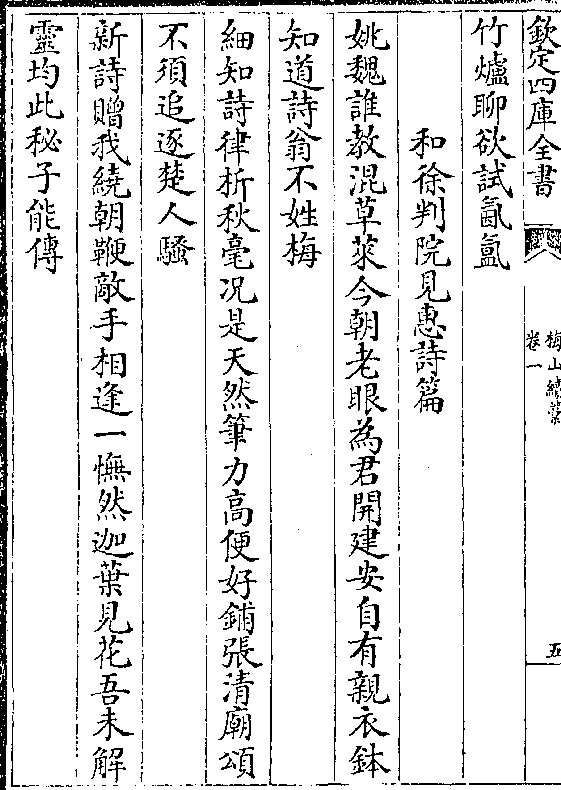 欽定四庫全書
梅山續藁
卷一
五
竹爐聊欲試氤氳
和徐判院見惠詩篇
姚魏誰教混草萊今朝老眼為君開建安自有親衣鉢
知道詩翁不姓梅
細知詩律析秋毫况是天然筆力高便好鋪張清廟頌
不須追逐楚人騷
新詩贈我繞朝鞭敵手相逢一憮然迦葉見花吾未解
靈均此秘子能傳